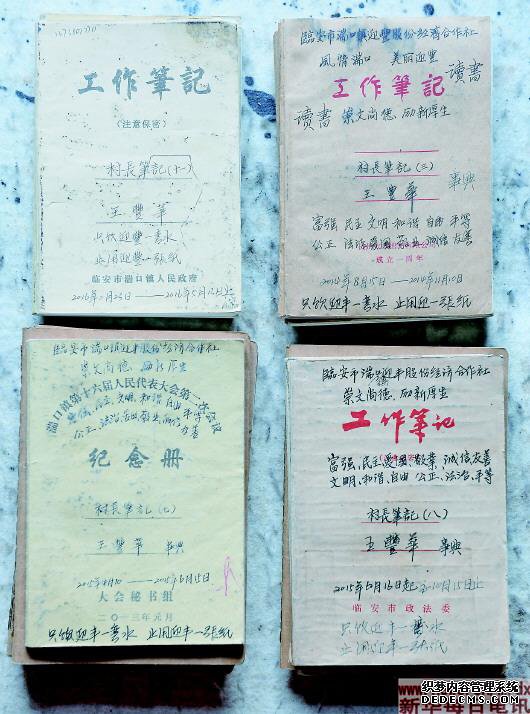 工作筆記
(注意保密)
村長筆記(十一)
王豐華
只饮迎丰一壶水
止用迎丰一张紙
临安市湍口镇人民政府
临安市湍口镇迎豐股份经濟合作社
風情湍口 美丽迎豐
工作筆記
讀書
讀書
崇文尚德 励新厚生
村長筆記(三)
王豐華
事典
富强 民主 文明 和谐 自由 平等
公正 法治 爱国 敬业 诚信 友善
成立一周年
2014年8月15日——2014年11月10日
只饮迎丰一壶水 止用迎丰一张紙
临安市湍口镇迎丰股份经济合作社
崇文尚德 励新厚生
湍口镇第十六届人民代表大会第二次会议
富强 民主 文明 和谐 自由 平等
公正 法治 爱国 敬业 诚信 友善
纪念册
村長筆記(七)
王豐華 事典
大会秘书组
二〇一三年元月
只饮迎丰一壶水 止用迎丰一张紙
临安市湍口迎丰股份经济合作社
崇文尚德 励新厚生
工作筆记
富强、民主、爱國、敬業、诚信友善
文明、和谐、自由 公正、法治、平等
村長筆記(八)
王豐華 事典
2015年6月16日起至10月15日止
临安市政法委
只饮迎丰一壶水
止用迎丰一张纸
织梦内容管理系统
DEDECMS.COM
新华每日电讯